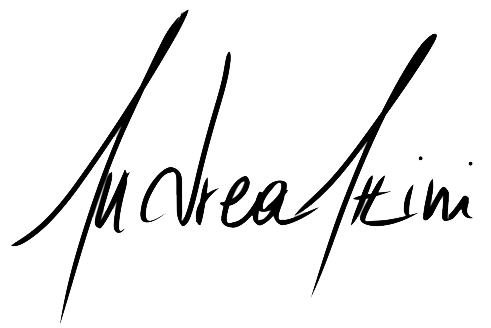 Andrea Attini